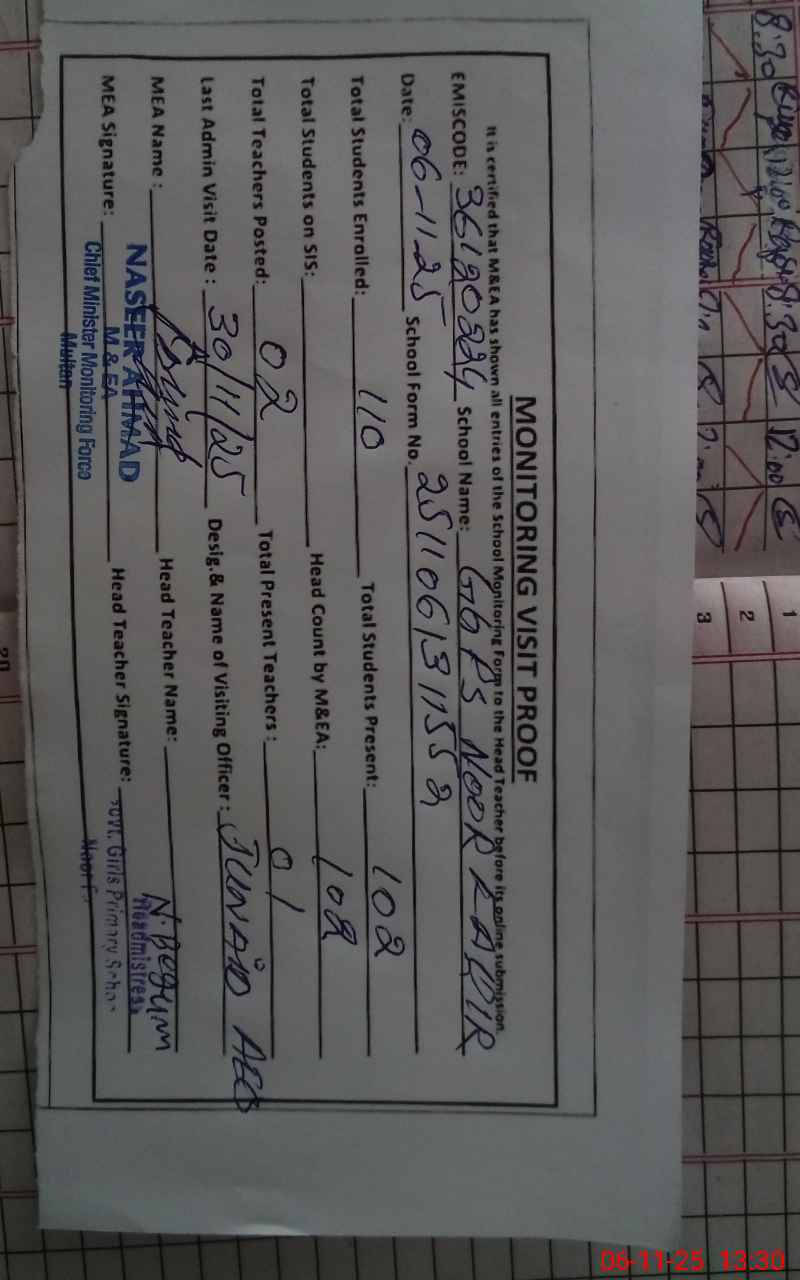 MONITORING VISIT PROOF
It is certified that M&EA has shown all entries of the School Monitoring Form to the Head Teacher before its online submission.
EMISCODE: 36120224 School Name: GGPS NOOR
Date: 06-11-25 School Form No. 2511061311552
Total Students Enrolled: 110 Total Students Present: 102
Total Students on SIS: Head Count by M&EA: 102
Total Teachers Posted: 02 Total Present Teachers : 01
Last Admin Visit Date : 30/11/25 Desig.& Name of Visiting Officer : JUNAID AEO
MEA Name : Head Teacher Name: N. Begum
MEA Signature: Head Teacher Signature:
NASEER AHMAD
M & EA
Chief Minister Monitoring Force
Multan
Headmistress
Govt. Girls Primary School
8:30 12:00 8:30 12:00
1
2
3
20
06-11-25 13:30